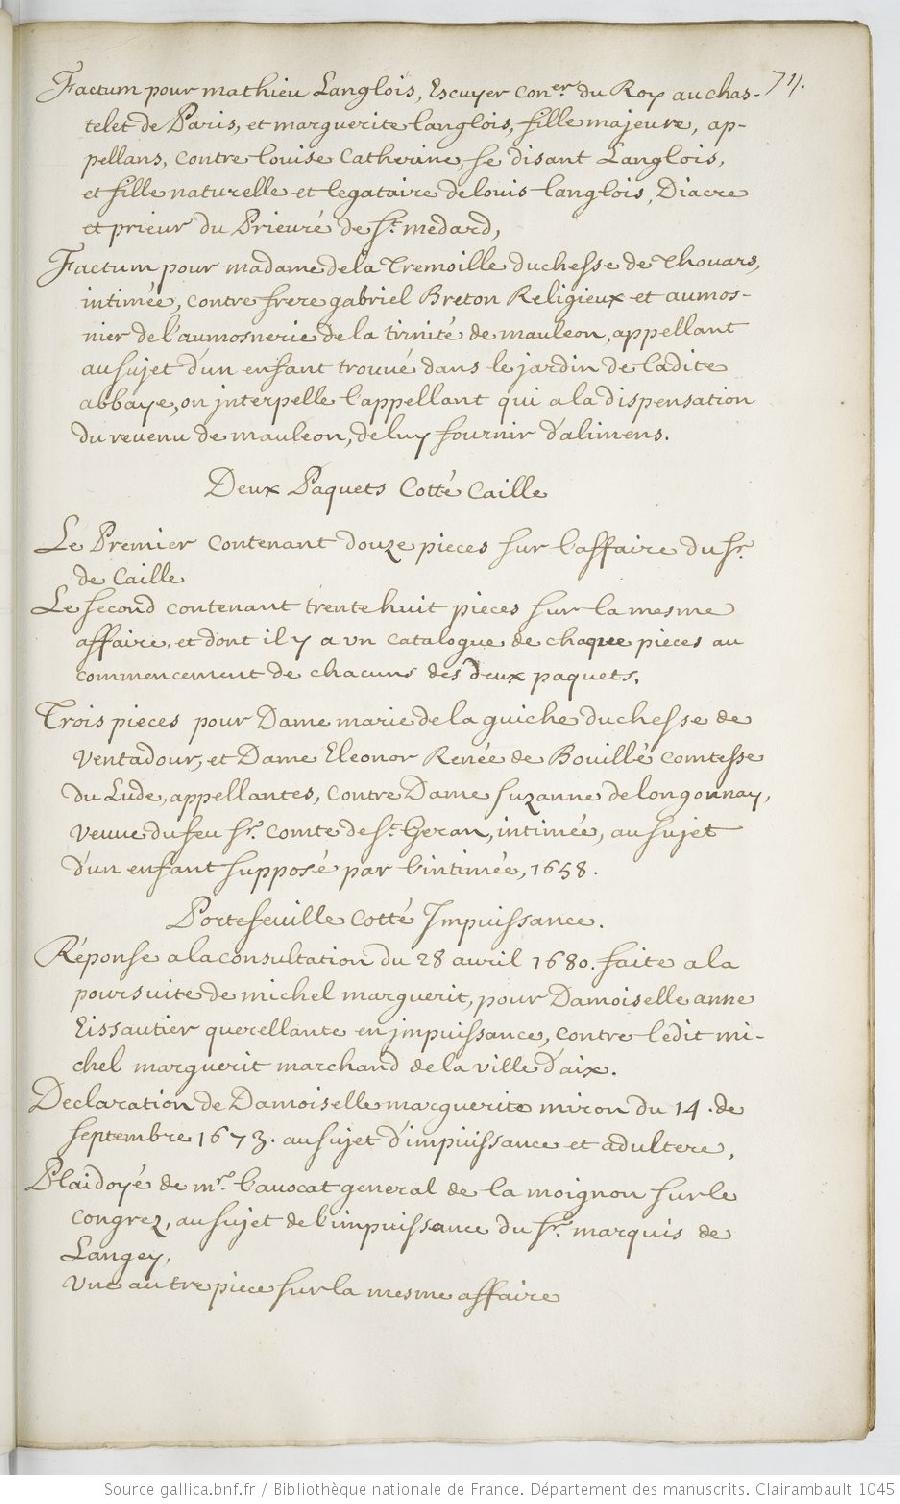 71.
Factum pour mathieu Langlois, Escuyer con.er du Roy au chas-
telet de Paris, et marguerite langlois, fille majeure, ap-
pellans, contre louise Catherine, se disant Langlois,
et fille naturelle et legataire de louis langlois, Diacre
et prieur du Prieuré de St. medard,
Factum pour madame de la Tremoille duchesse de Thouars,
intimée, contre frere gabriel Breton Religieux et aumos-
nier de l'aumosnerie de la trinité de mauleon, appellant
au sujet d'un enfant trouvé dans le jardin de ladite
abbaye, on interpelle l'appellant qui a la dispensation
du revenu de mauleon, de luy fournir d'alimens.
Deux Paquets Cotté Caille
Le Premier contenant douze pieces sur l'affaire du Sr.
de Caille
Le second contenant trente huit pieces sur la mesme
affaire, et dont il y a un catalogue de chaque pieces au
commencement de chacuns des deux paquets.
Trois pieces pour Dame marie de la guiche duchesse de
Ventadour, et Dame Eleonor Renée de Bouillé comtesse
du Lude, appellantes, contre Dame suzanne de longaunay,
veuve du feu Sr. Comte de St. Geran, intimée, au sujet
d'un enfant supposé par l'intimée, 1658.
Portefeuille cotté Impuissance.
Réponse a la consultation du 28 avril 1680. faite a la
poursuite de michel marguerit, pour Damoiselle anne
Eissautier querellante en jmpuissance, contre ledit mi-
chel marguerit marchand de la ville d'aix.
Declaration de Damoiselle marguerite miron du 14. de
septembre 1673. au sujet d'impuissance et adultere,
Plaidoyé de mr. l'avocat general de la moignon sur le
congrez, au sujet de l'impuissance du Sr. marquis de
Langey,
Une autre piece sur la mesme affaire
Source gallica.bnf.fr / Bibliothèque nationale de France. Département des manuscrits. Clairambault 1045